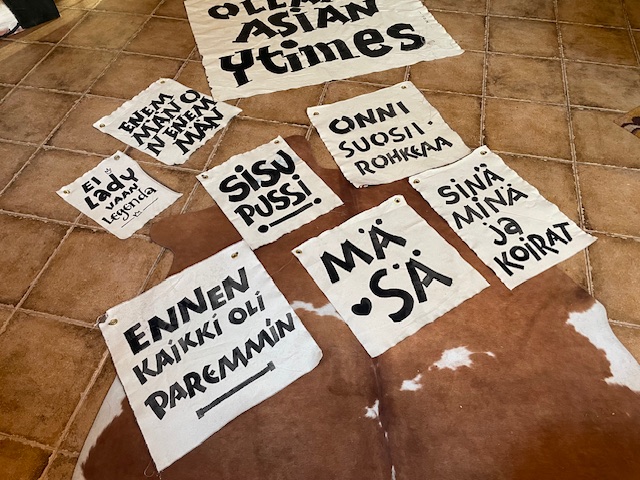 OLLAAN
ASIAN
Ytimessä
ENEM
MÄN O
N ENEM
MÄN
ONNI
SUOSII
ROHKEAA
EI
LADY
VAAN
Legenda
SISU
PUSSI
SINÄ
MINÄ
ja
KOIRAT
MÄ
♥ SÄ
ENNEN
KAIKKI OLI
PAREMMIN